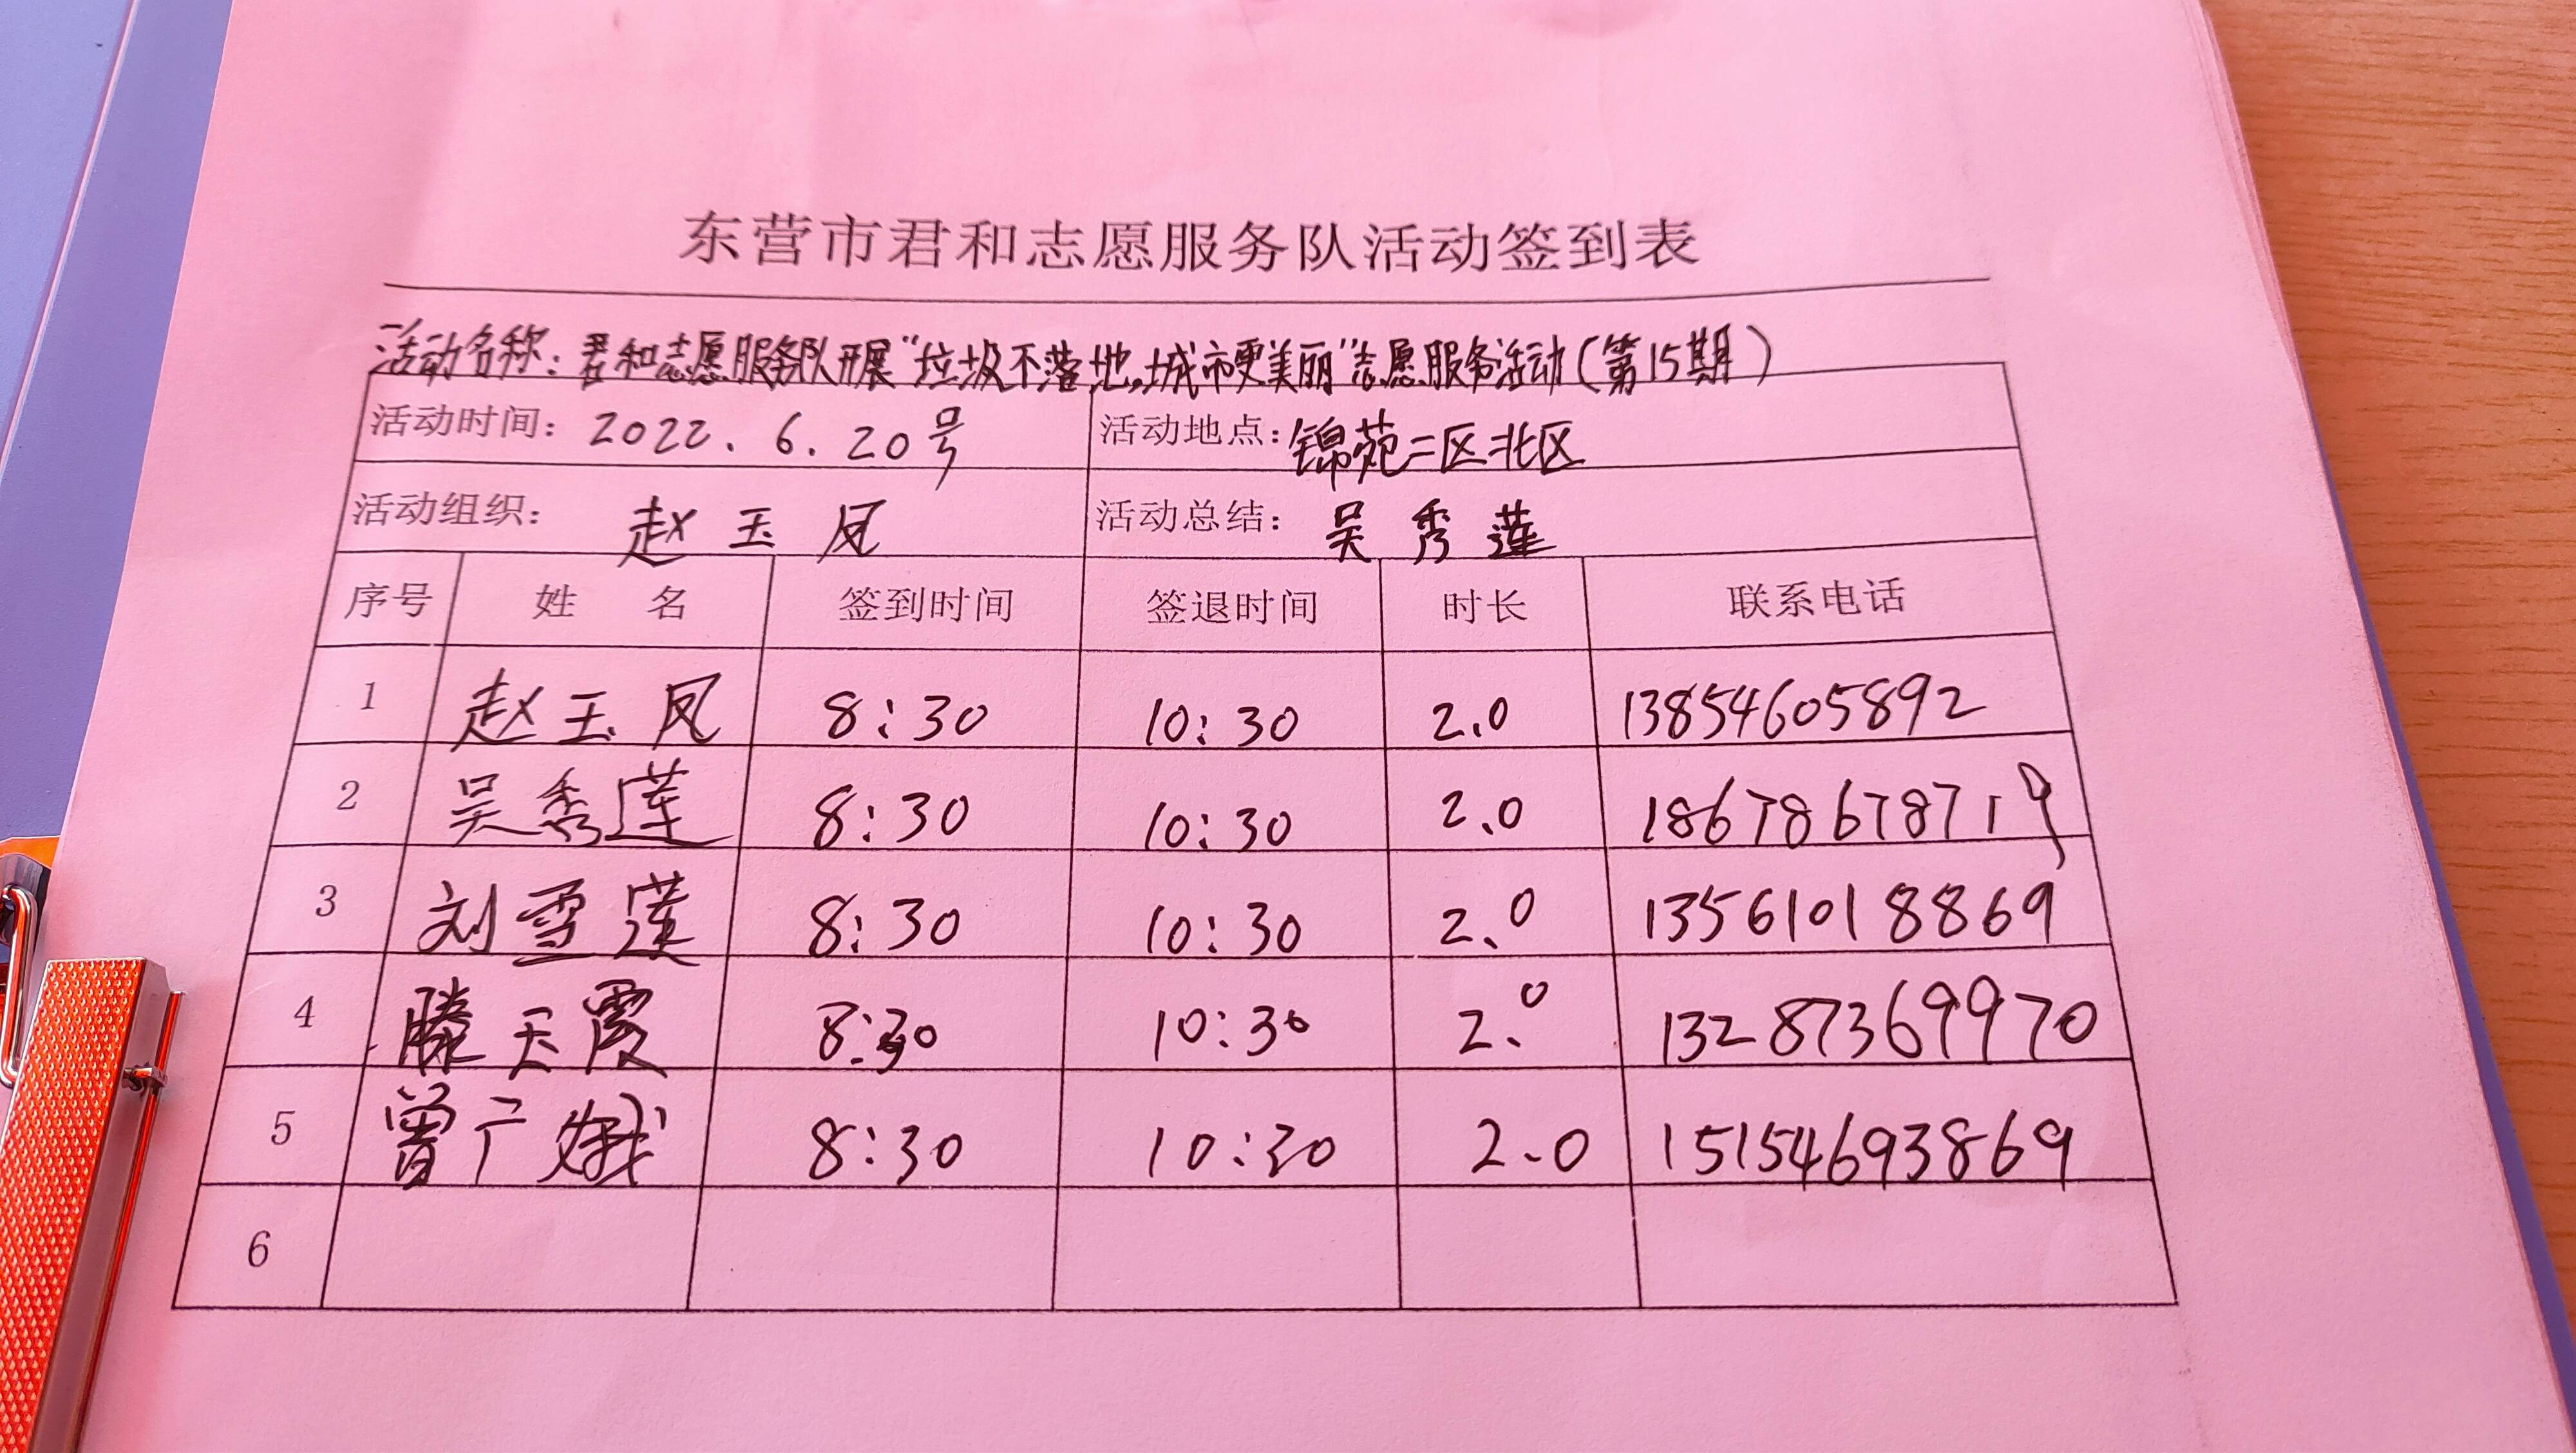 东营市君和志愿服务队活动签到表
活动名称：君和志愿服务队开展“垃圾不落地，城市更美丽”志愿服务活动（第15期）
活动时间：2022.6.20号 活动地点：锦苑二区北区
活动组织：赵玉凤 活动总结：吴秀莲
序号 姓名 签到时间 签退时间 时长 联系电话
1 赵玉凤 8:30 10:30 2.0 13854605892
2 吴秀莲 8:30 10:30 2.0 18678678719
3 刘雪莲 8:30 10:30 2.0 13561018869
4 滕玉霞 8:30 10:30 2.0 13287369970
5 曾广娥 8:30 10:30 2.0 15154693869
6